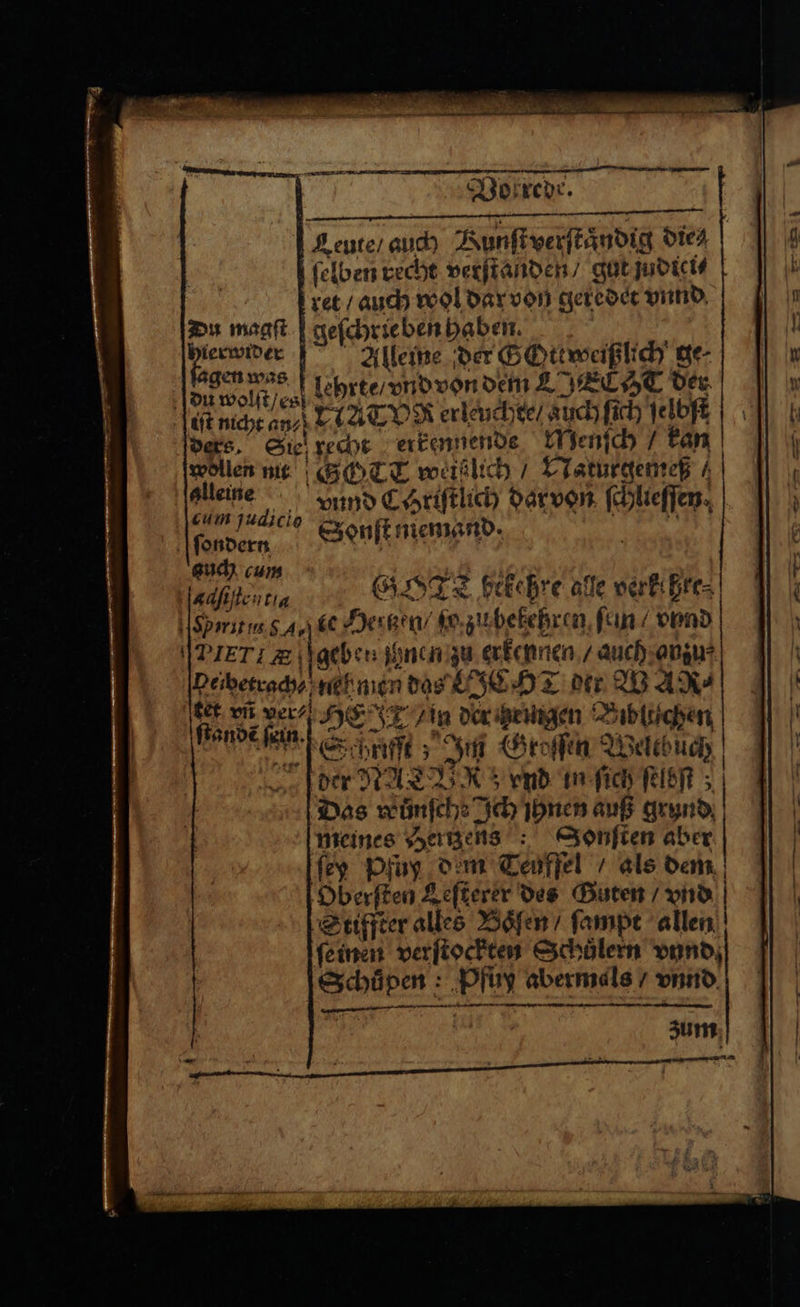 Vorrede.
Leute/ auch Kunstverståndig die⸗
selben recht verstanden/ gut judici⸗
ret / auch wol darvon geredet vnnd
geschrieben haben.
Alleine der GOttweißlich ge-
lehrte/ vnd von dem LJECHT der
NATVR erleuchte/ auch sich selbst
recht erkennende Mensch / kan
GOTT weißlich / Naturgemeß /
vnnd CHristlich darvon schliessen,
Sonst niemand.
GOTT bekehre alle verkehre⸗
te Hertzen/ so zubekehren sein / vnnd
geben jhnen zu erkennen / auch anzu⸗
nehmen das LJECHT der WAR⸗
HEJT / in der heiligen Biblischen
Schrifft ; Jm Grossen Weltbuch
der NATVR ; vnd in sich selbst ;
Das wůnsche Jch jhnen auß grund
meines Hertzens : Sonsten aber
sey Pfuy dem Teuffel / als dem
Obersten Lesterer des Guten / vnd
Stiffter alles Bősen / sampt allen
seinen verstockten Schůlern vnnd
Schůpen : Pfuy abermals / vnnd
zum
Du magst
hierwider
sagen was
du wolst/es
ist nicht an⸗
ders. Sie
wollen nit
alleine
cum judicio
sondern
auch cum
adsistentia
Spiritus SA⸗
PIETIÆ
beibetrach⸗
tet vñ ver⸗
standẽ sein.